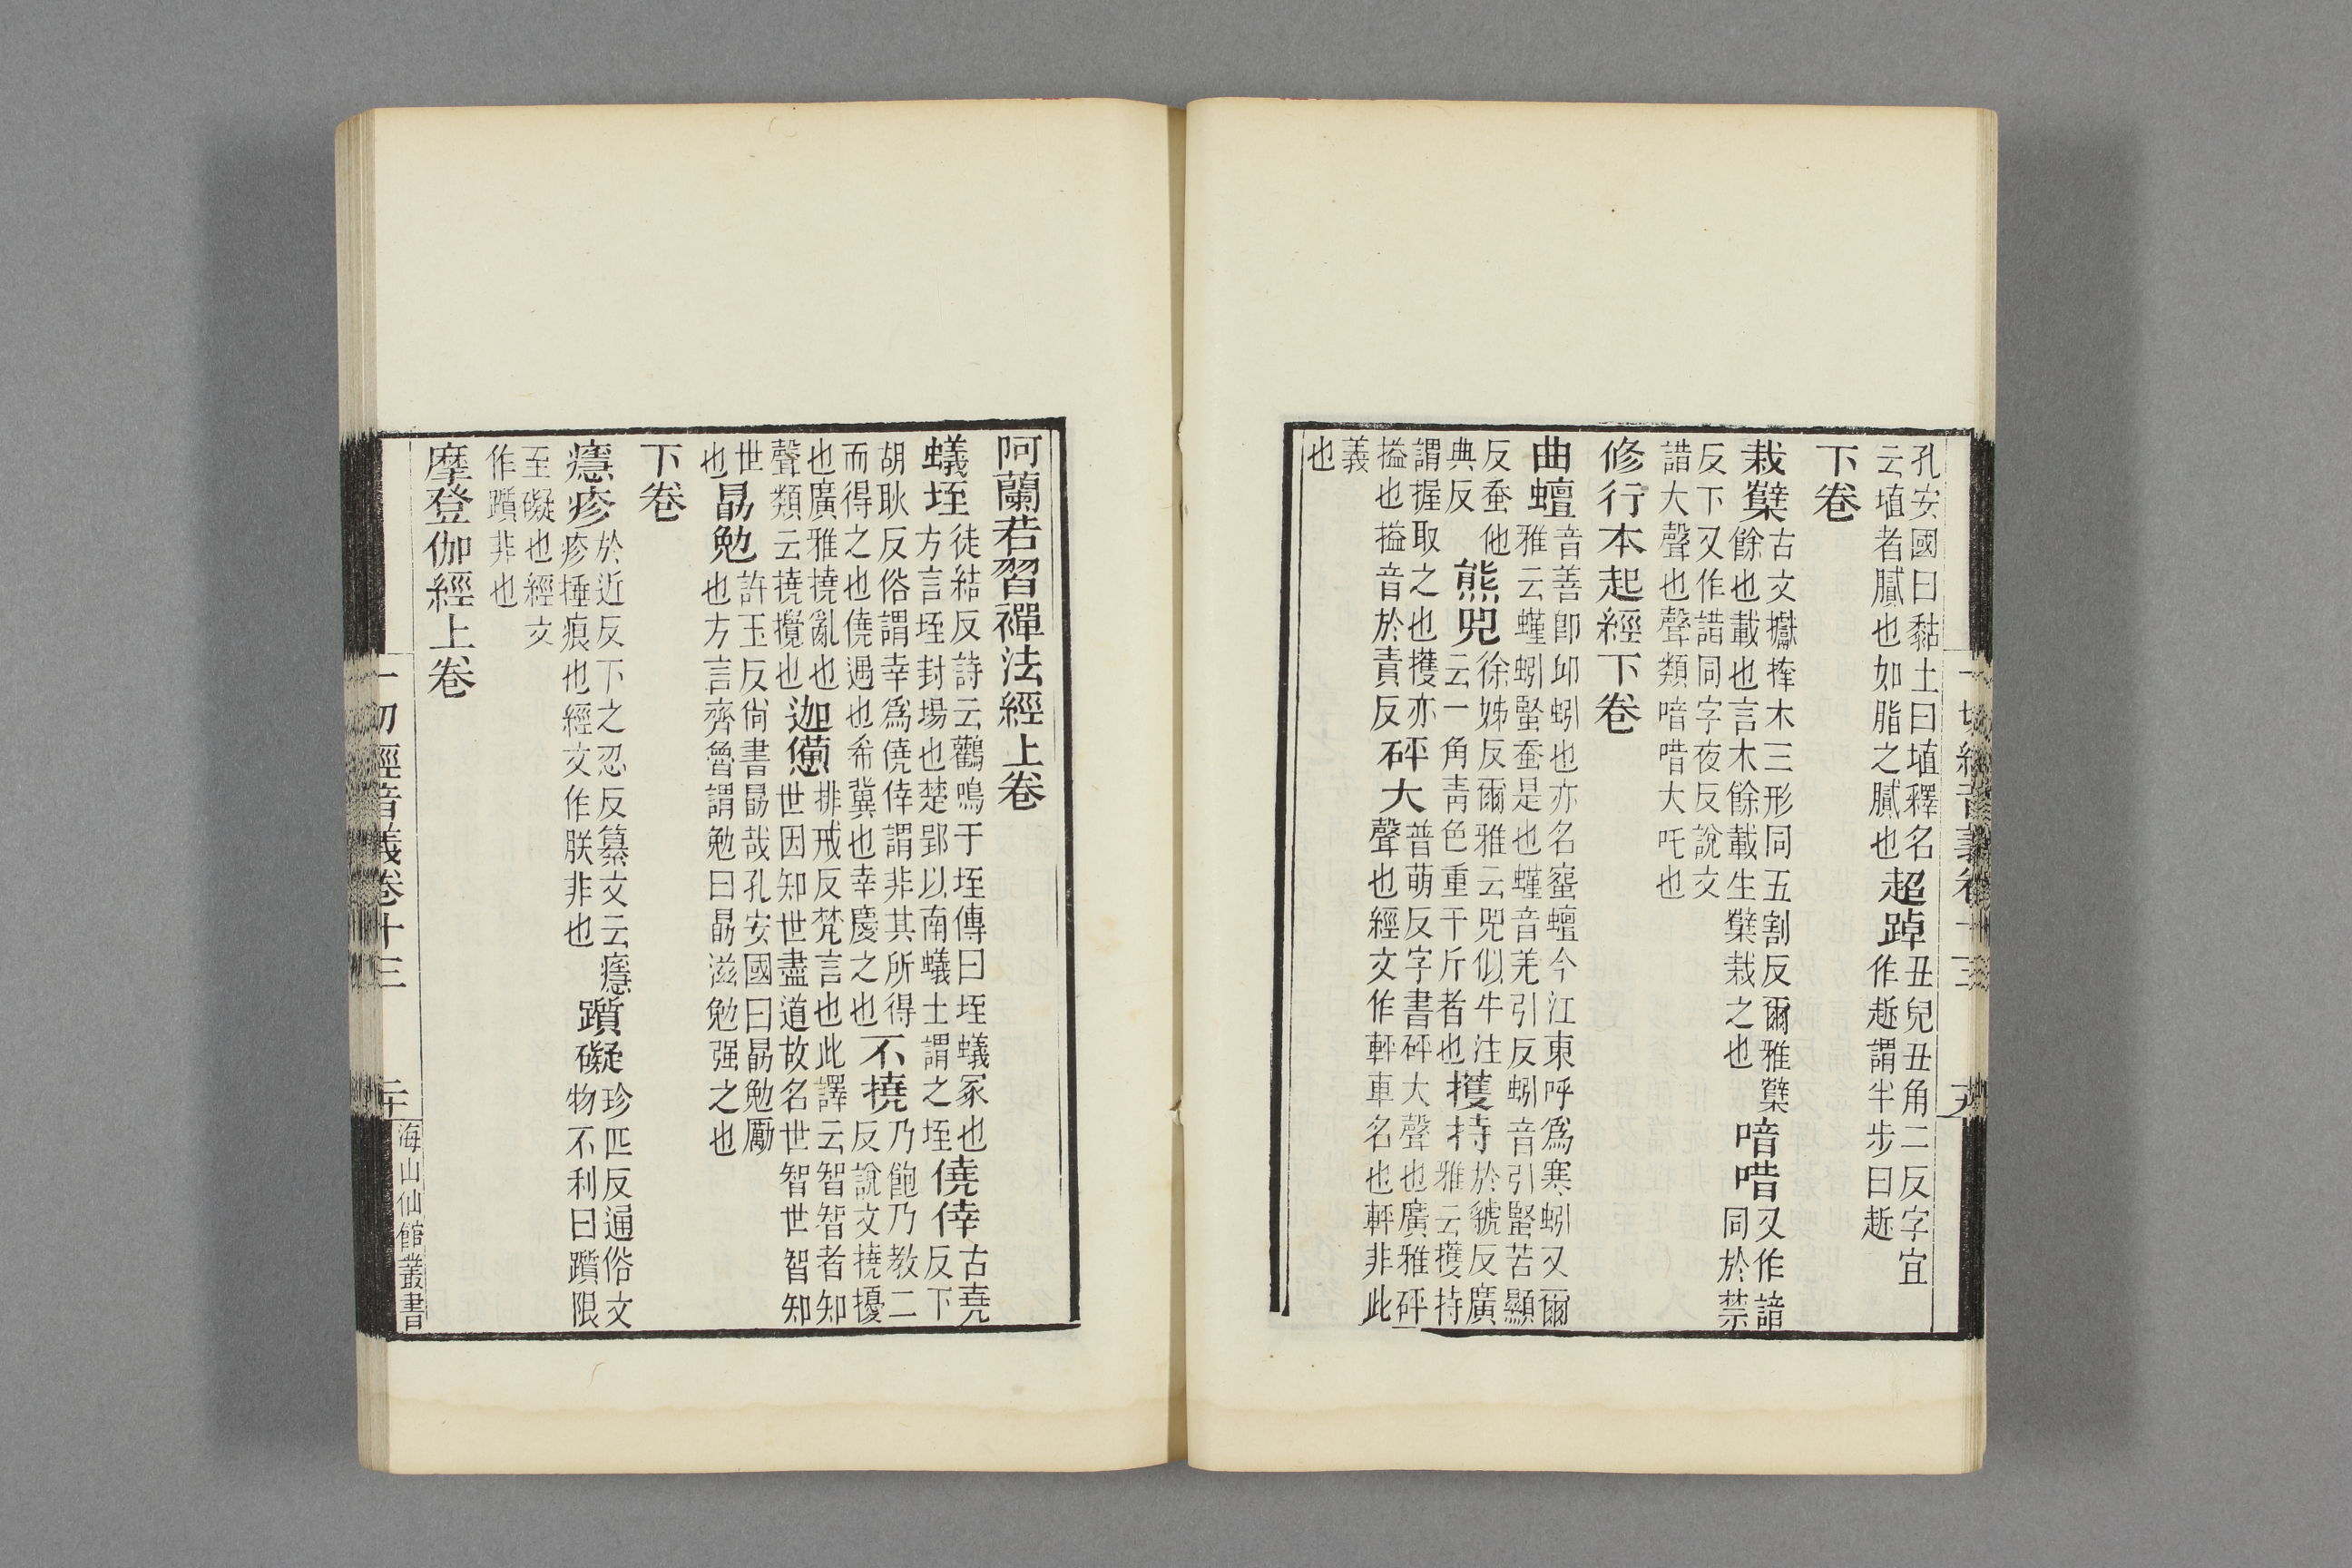 孔安國曰黏土曰埴釋名
云埴者膩也如脂之膩也
超踔
丑皃丑角二反字宜
作趠謂半步曰趠
下卷
栽櫱
古文㮆木三形同五割反爾雅櫱
餘也載也言木餘載生櫱栽之也
喑唶
又作諳
同於禁
反下又作諎同字夜反說文
諎大聲也聲類喑唶大吒也
修行本起經下卷
曲蟺
音善卽邱蚓也亦名蟺今江東呼爲寒蚓又爾
雅云螼蚓蜸蚕是也螼音羌引反蚓音引蜸苦顯
反蚕他
典反
熊兕
徐姊反爾雅云兕似牛注
云一角靑色重千斤者也
擭持
於虢反廣
雅云擭持
謂握取之也擭亦
搤也搤音於責反
砰大
普萌反字書砰大聲也廣雅砰
聲也經文作軯車名也軯非此
義
也
一切經音義卷十三
十九
阿蘭若習禪法經上卷
蟻垤
徒結反詩云鸛鳴于垤傳曰垤蟻冢也
方言垤封場也楚郢以南蟻土謂之垤
僥倖
古堯
反下
胡耿反俗謂幸爲僥倖謂非其所得
而得之也僥遇也希冀也幸慶之也
不撓
乃飽乃教二
反說文撓擾
也廣雅撓亂也
聲類云撓攪也
迦憊
排戒反梵言也此譯云智智者知
世因知世盡道故名世智世智知
世
也
勗勉
許玉反尙書勗哉孔安國曰勗勉勵
也方言齊魯謂勉曰勗滋勉强之也
下卷
癮疹
於近反下之忍反纂文云癮
疹捶痕也經文作朕非也
躓礙
珍匹反通俗文
物不利曰躓限
至礙也經文
作躓非也
摩登伽經上卷
一切經音義卷十三
二十
海山仙館叢書